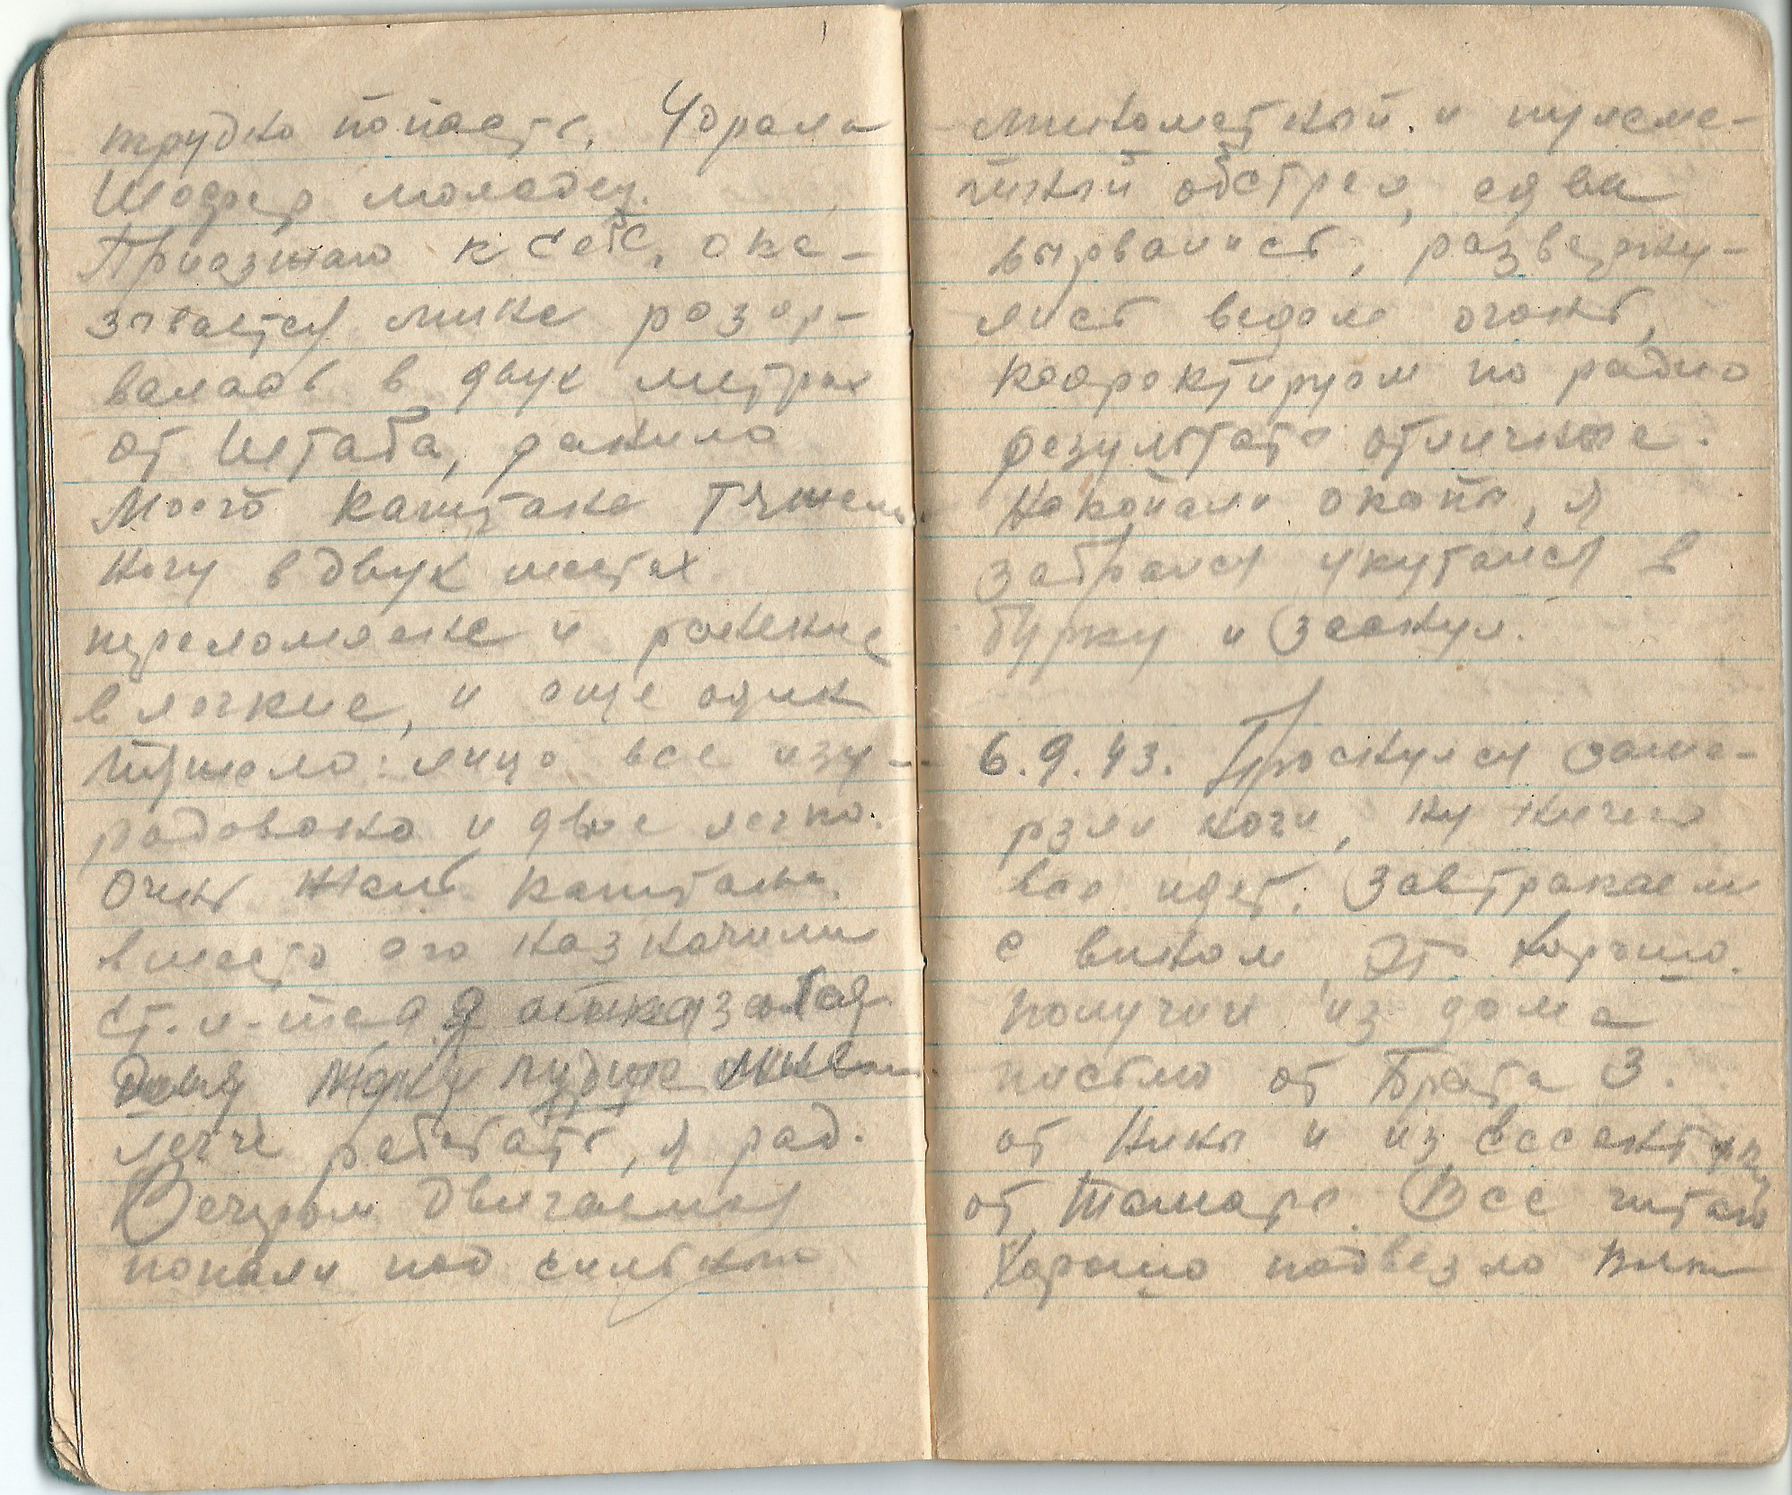 трудно попасть. Удрали
Шофер молодец.
Приезжаю к себе, ока-
зывается мина разор-
валась в двух метрах
от Штаба, ранило
Моего капитана тяжело
ногу в двух местах
переломано и ранение
в легкие, и еще один
тяжело: лицо все изу-
радовано и двое легко.
Очень жаль капитана.
вместо его назначили
ст. л-та я отказался
лучше
легче работать, я рад.
Вечером двигаемся
попали под сильный
минометный и пулеме-
тный обстрел, едва
вырвались, разверну-
лись ведем огонь,
корректируем по радио
результаты отличные.
Накопали окопы, я
забрался укутался в
бурку и заснул.
6.9.43. Проснулся заме-
рзли ноги, ну ничего
все идет. Завтракаем
с вином, это хорошо.
получил из дома
письмо от брата З.
от Нины и из Ессентуки
от Тамары. Все читаю
Хорошо подвезло